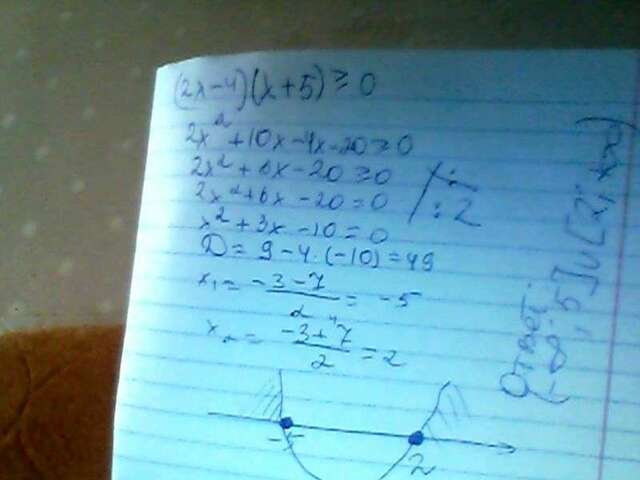 (2x-4)(x+5) ≥ 0
2x² + 10x - 4x - 20 ≥ 0
2x² + 6x - 20 ≥ 0
2x² + 6x - 20 = 0 / : 2
x² + 3x - 10 = 0
D = 9 - 4·(-10) = 49
x₁ = (-3-7)/2 = -5
x₂ = (-3+7)/2 = 2
-5 2
Ответ:
(-∞; 5] ∪ [2; +∞)